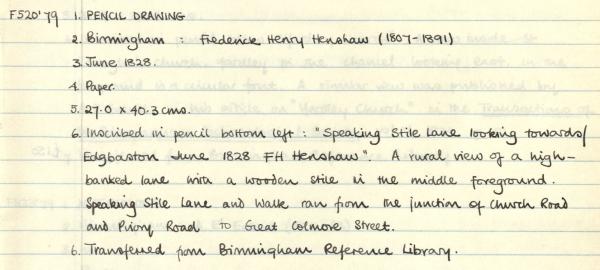 F520'79 1. PENCIL DRAWING
2. Birmingham : Frederick Henry Henshaw (1807-1891)
3. June 1828.
4. Paper.
5. 27.0 x 40.3 cms.
6. Inscribed in pencil bottom left : "Speaking Stile Lane looking towards/
Edgbaston June 1828 FH Henshaw". A rural view of a high-
banked lane with a wooden stile in the middle foreground.
Speaking Stile Lane and Walk ran from the junction of Church Road
and Priory Road to Great Colmore Street.
6. Transferred from Birmingham Reference Library.